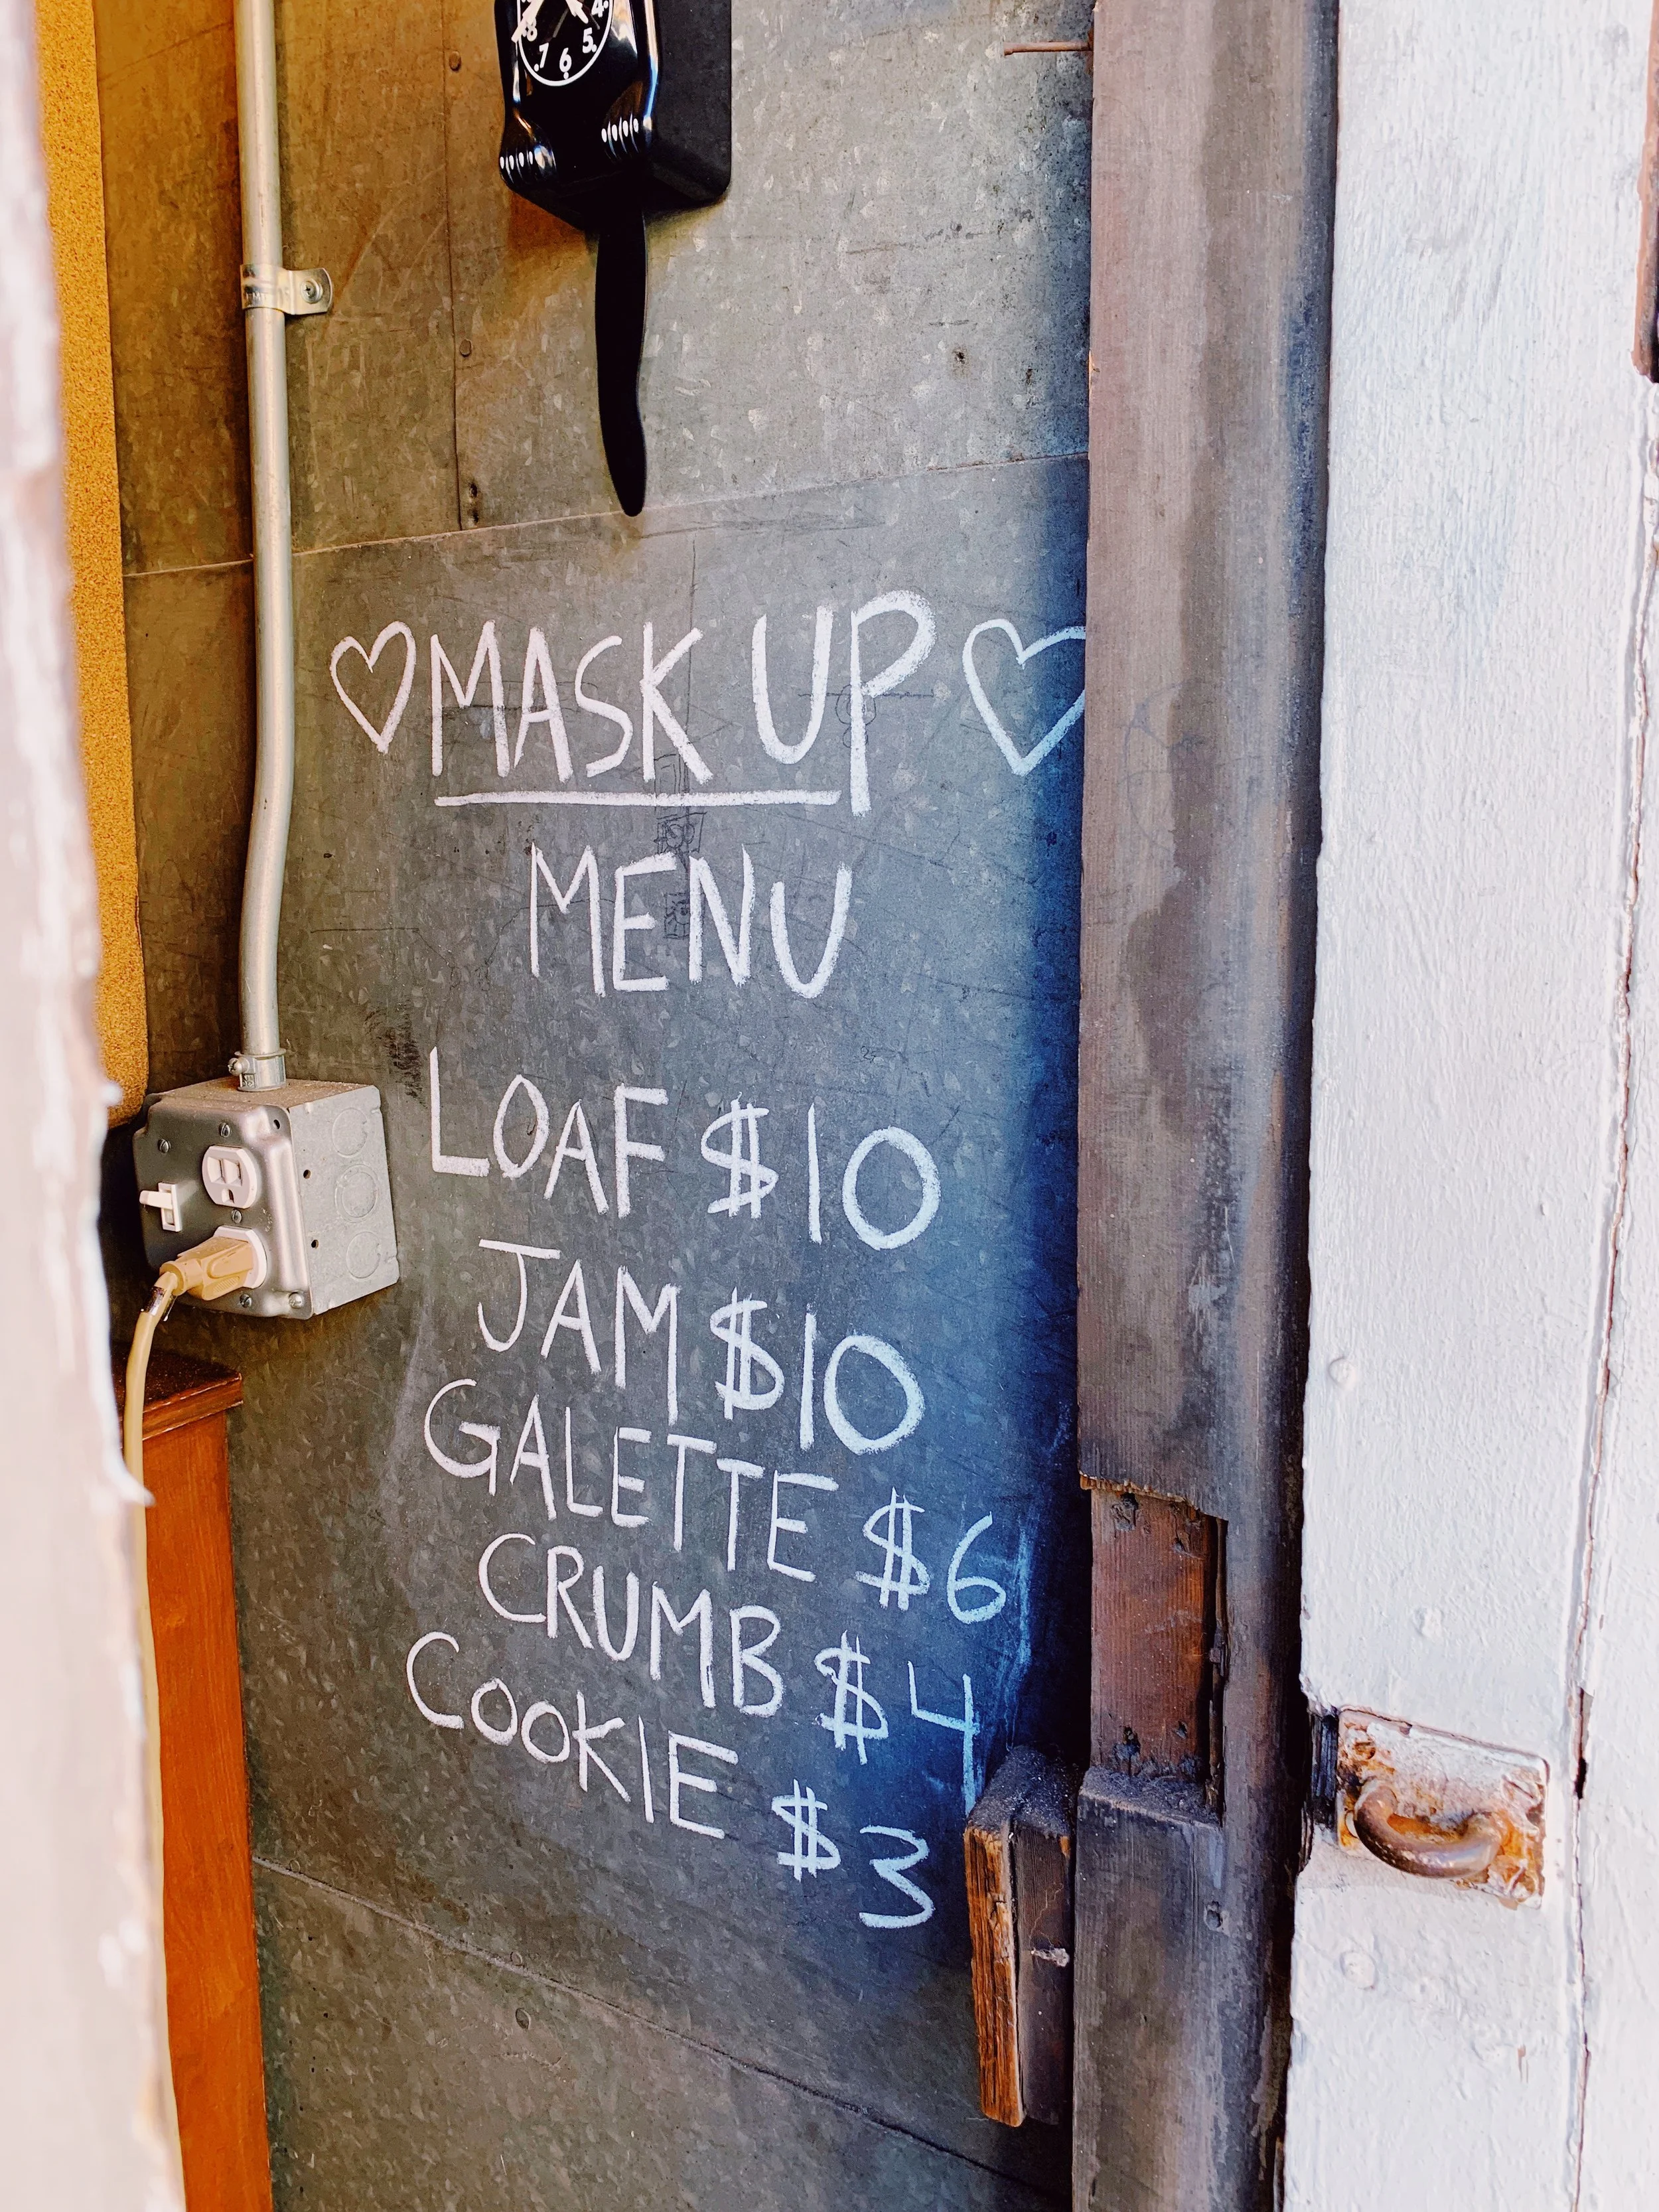 8 7 6 5 4
♡ MASK UP ♡
MENU
LOAF $10
JAM $10
GALETTE $6
CRUMB $4
COOKIE $3